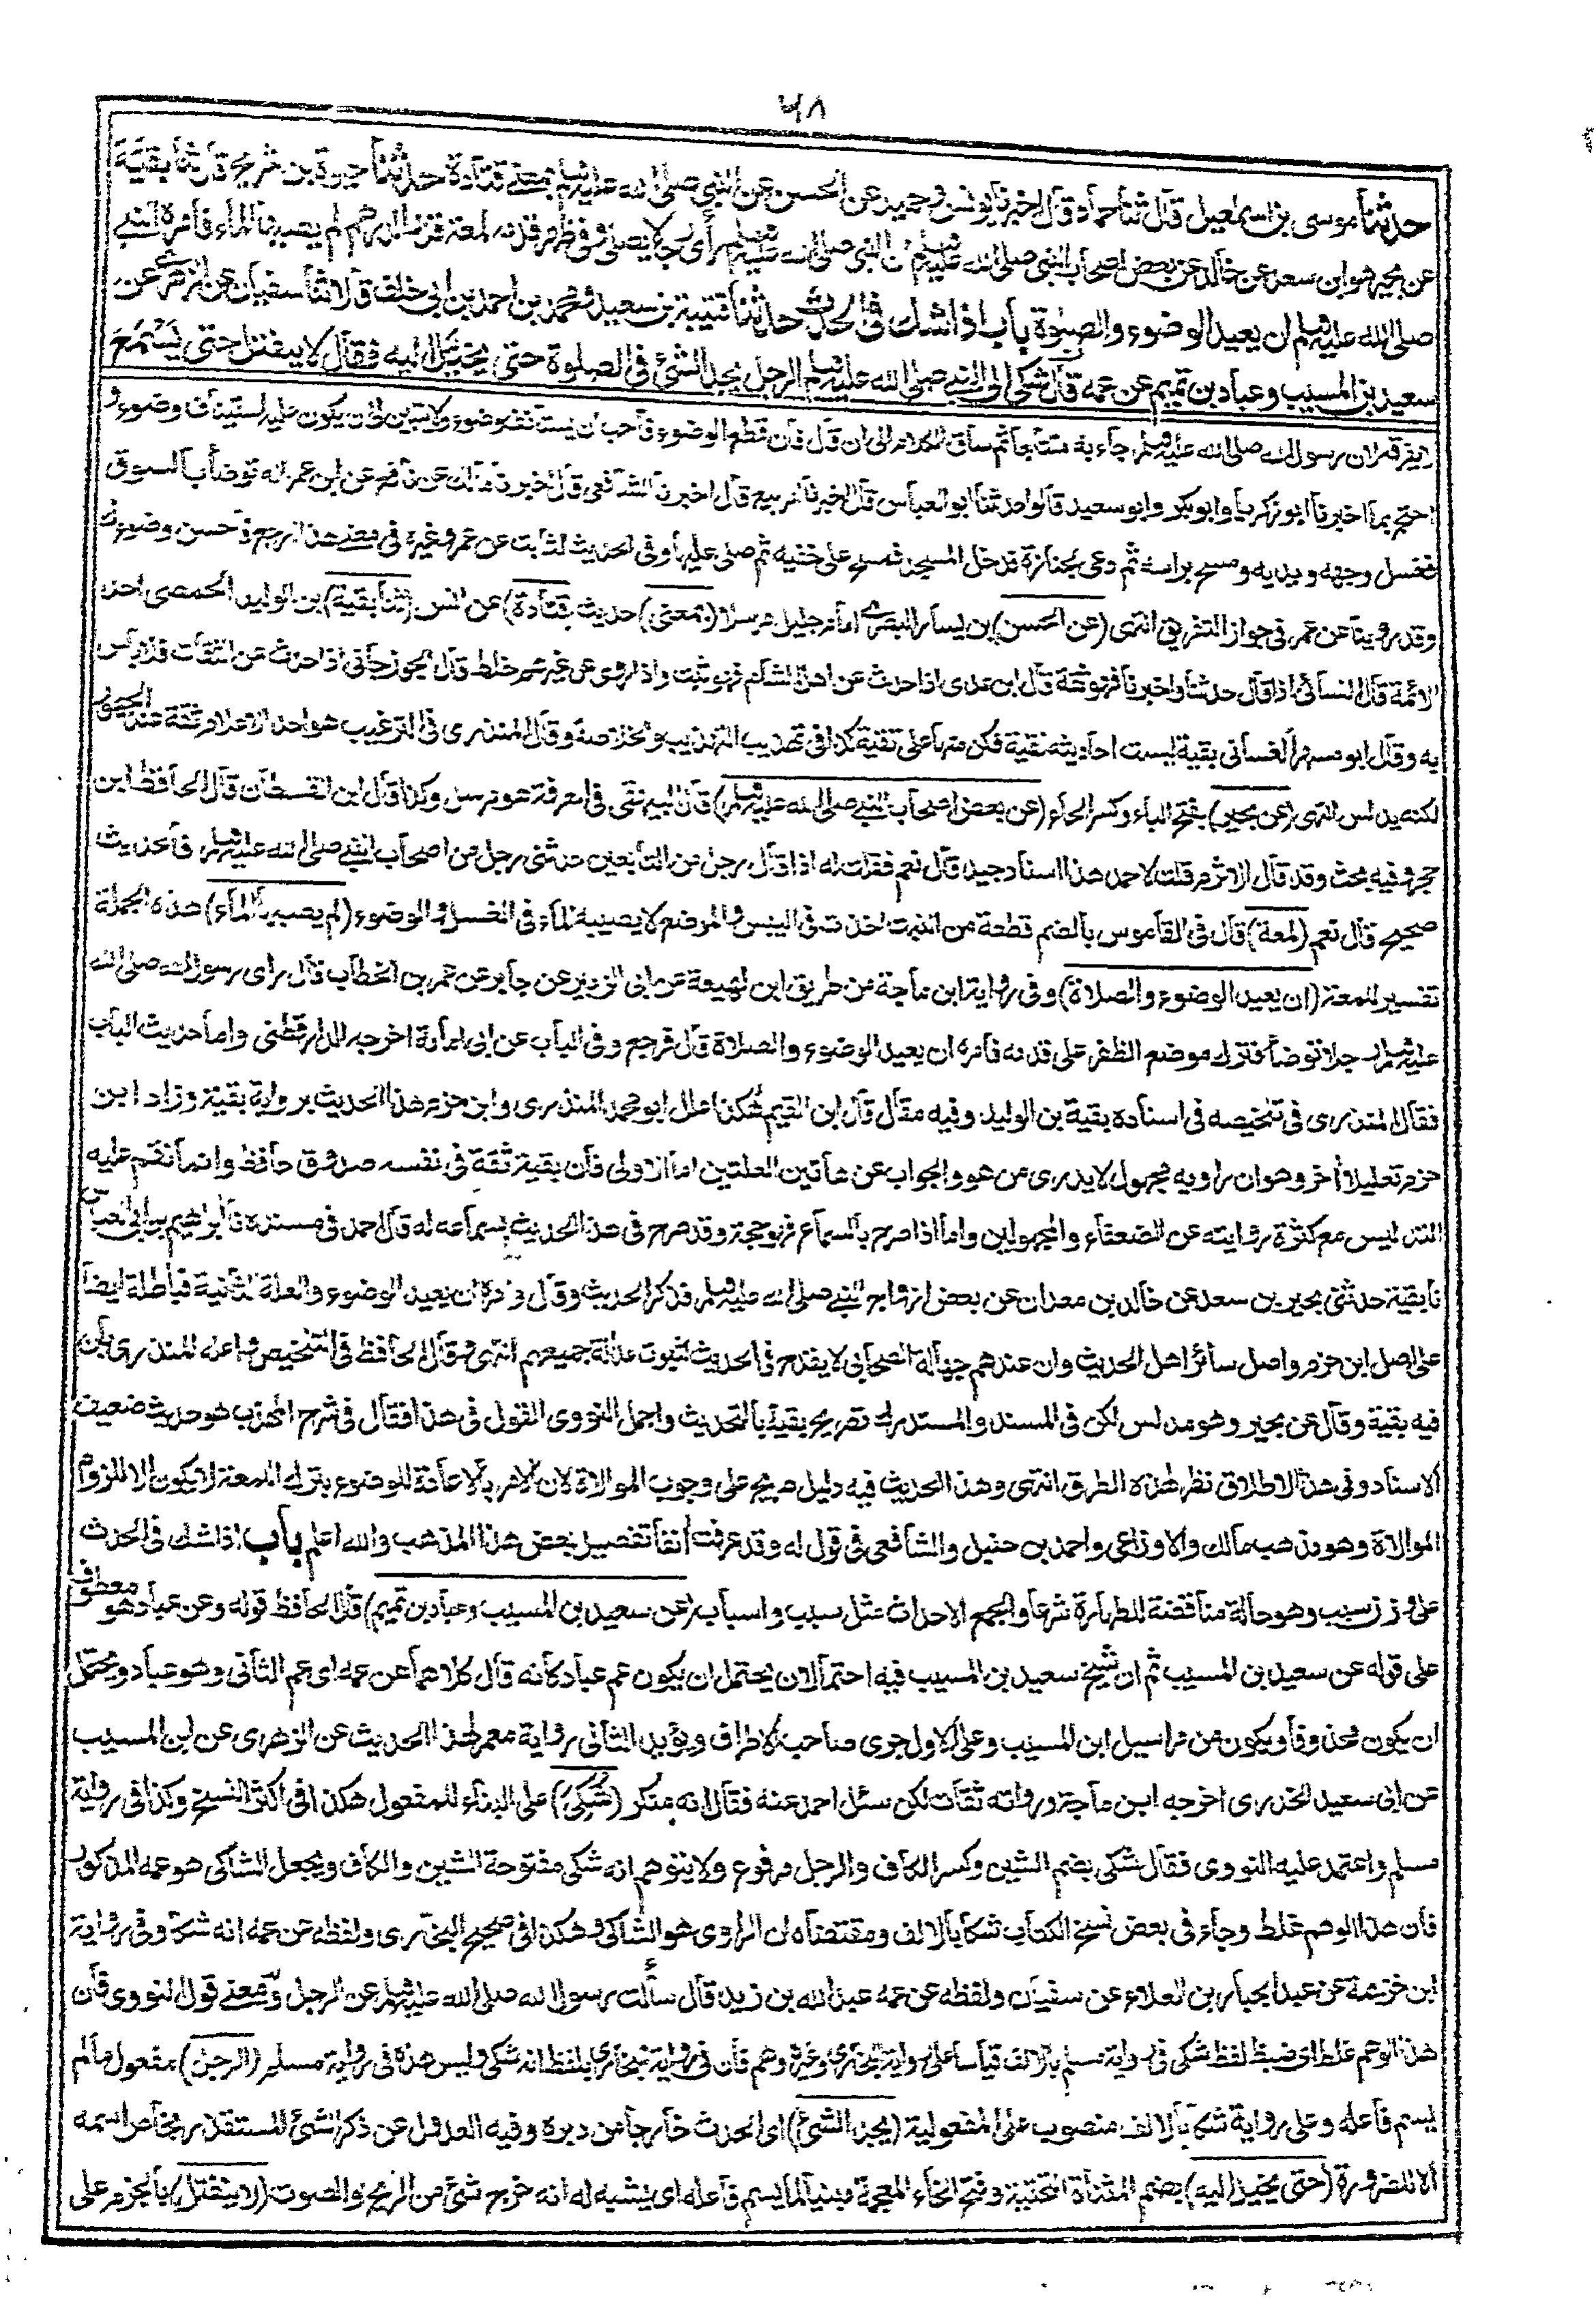 ٦٨
حدثنا موسى بن اسمعيل قال ثنا حماد قال اخبرنا يونس وحميد عن الحسن عن النبي صلى الله عليه وسلم بمعنے قتادة حدثنا حيوة بن شريح قال ثنا بقية
عن بحير هو ابن سعد عن خالد عن بعض اصحاب النبي صلى الله عليه وسلم ان النبي صلى الله عليه وسلم رأى رجلا يصلي وفي ظهر قدمه لمعة قدر الدرهم لم يصبها الماء فأمره النبي
صلى الله عليه وسلم ان يعيد الوضوء والصلوة باب اذا شك في الحدث حدثنا قتيبة بن سعيد ومحمد بن احمد بن ابي خلف قالا ثنا سفيان عن الزهري عن
سعيد بن المسيب وعباد بن تميم عن عمه قال شكي الى النبي صلى الله عليه وسلم الرجل يجد الشئ في الصلوة حتى يخيل اليه فقال لا ينفتل حتى يسمع
ان رسول الله صلى الله عليه وسلم جاء به متتابعا ثم ساق الكلام الى ان قال فان قطع الوضوء فأحب ان يستأنف وضوء ولا يتبين لي ان يكون عليه استيناف وضوء و
احتج بما اخبرنا ابو زكريا وابو بكر وابو سعيد قالوا حدثنا ابو العباس قال اخبرنا الربيع قال اخبرنا الشافعي قال اخبرنا مالك عن نافع عن ابن عمر انه توضأ بالسوق
فغسل وجهه ويديه ومسح براسه ثم دعي بجنازة فدخل المسجد فمسح على خفيه ثم صلى عليها وفي الحديث الثابت عن عمر وغيره في معنے هذا ارجع فأحسن وضوءك
وقد روينا عن عمر في جواز التفريق انتهى (عن الحسن) بن يسار البصري امام جليل مرسلا (بمعنى) حديث (قتادة) عن انس (ثنا بقية) بن الوليد الحمصي احد
الائمة قال النسائي اذا قال حدثنا واخبرنا فهو ثقة قال ابن عدى اذا حدث عن اهل الشام فهو ثبت واذا روى عن غيرهم خلط قال الجوزجاني اذا حدث عن الثقات فلا بأس
به وقال ابو مسهر الغساني بقية ليست احاديثه نقية فكن منها على تقية كذا في تهذيب التهذيب والخلاصة وقال المنذرى في الترغيب هو احد الاعلام ثقة عند الجمهور
لكنه يدلس انتهى (عن بحير) بفتح الباء وكسر الحاء (عن بعض اصحاب النبي صلى الله عليه وسلم) قال البيهقي في المعرفة هو مرسل وكذا قال ابن القطان قال الحافظ ابن
حجر وفيه بحث وقد قال الاثرم قلت لاحمد هذا اسناد جيد قال نعم فقلت له اذا قال رجل من التابعين حدثني رجل من اصحاب النبي صلى الله عليه وسلم فالحديث
صحيح قال نعم (لمعة) قال في القاموس بالضم قطعة من النبت اخذت في اليبس والموضع لا يصيبه الماء في الغسل او الوضوء (لم يصبها الماء) هذه الجملة
تفسير للمعة (ان يعيد الوضوء والصلاة) وفي رواية ابن ماجة من طريق ابن لهيعة عن ابي الزبير عن جابر عن عمر بن الخطاب قال راى رسول الله صلى الله
عليه وسلم رجلا توضأ فترك موضع الظفر على قدمه فأمره ان يعيد الوضوء والصلاة قال فرجع وفي الباب عن ابي امامة اخرجه الدارقطني واما حديث الباب
فقال المنذري في تلخيصه في اسناده بقية بن الوليد وفيه مقال قال ابن القيم هكذا علل ابو محمد المنذرى وابن حزم هذا الحديث برواية بقية وزاد ابن
حزم تعليلا آخر وهو ان راويه مجهول لا يدرى من هو والجواب عن هاتين العلتين اما الاولى فان بقية ثقة في نفسه صدوق حافظ وانما نقم عليه
التدليس مع كثرة روايته عن الضعفاء والمجهولين واما اذا صرح بالسماع فهو حجة وقد صرح في هذا الحديث بسماعه له قال احمد في مسنده نا ابراهيم بن ابي العباس
نا بقية حدثني بحير بن سعد عن خالد بن معدان عن بعض ازواج النبي صلى الله عليه وسلم فذكر الحديث وقال فامره ان يعيد الوضوء والعلة الثانية فباطلة ايضا
على اصل ابن حزم واصل سائر اهل الحديث وان عندهم جهالة الصحابي لا يقدح في الحديث لثبوت عدالة جميعهم انتهى وقال الحافظ في التلخيص واعله المنذرى بأن
فيه بقية وقال عن بحير وهو مدلس لكن في المسند والمستدرك تصريح بقية بالتحديث واجمل النووى القول في هذا فقال في شرح المهذب هو حديث ضعيف
الاسناد وفي هذا الاطلاق نظر لهذه الطرق انتهى وهذا الحديث فيه دليل صريح على وجوب الموالاة لان الامر بالاعادة للوضوء بترك اللمعة لا يكون الا للزوم
الموالاة وهو مذهب مالك والاوزاعي واحمد بن حنبل والشافعي في قول له وقد عرفت آنفا تفصيل بعض هذا المذهب والله اعلم باب اذا شك في الحدث
على وزن سبب وهو حالة مناقضة للطهارة شرعا والجمع الاحداث مثل سبب واسباب (عن سعيد بن المسيب وعباد بن تميم) قال الحافظ قوله وعن عباد هو معطوف
على قوله عن سعيد بن المسيب ثم ان شيخ سعيد بن المسيب فيه احتمالان يحتمل ان يكون عم عباد كأنه قال كلاهما عن عمه اى عم الثاني وهو عباد ويحتمل
ان يكون محذوفا ويكون من مراسيل ابن المسيب وعلى الاول جرى صاحب الاطراف ويؤيد الثاني رواية معمر لهذا الحديث عن الزهرى عن ابن المسيب
عن ابي سعيد الخدرى اخرجه ابن ماجة ورواته ثقات لكن سئل احمد عنه فقال انه منكر (شُكِيَ) على البناء للمفعول هكذا في اكثر النسخ وكذا في رواية
مسلم واعتمد عليه النووى فقال شكى بضم الشين وكسر الكاف والرجل مرفوع ولا يتوهم انه شكى مفتوحة الشين والكاف ويجعل الشاكي هو عمه المذكور
فان هذا الوهم غلط وجاء في بعض نسخ الكتاب شكا بالالف ومقتضاه ان الراوى هو الشاكي وهكذا في صحيح البخارى ولفظه عن عمه انه شكا وفي رواية
ابن خزيمة عن عبد الجبار بن العلاء عن سفيان ولفظه عن عمه عبد الله بن زيد قال سألت رسول الله صلى الله عليه وسلم عن الرجل ومعنے قول النووى فان
هذا الوهم غلط اى ضبط لفظ شكى في رواية مسلم بالالف قياسا على رواية البخارى وغيره وهم فان في رواية البخارى بلفظ انه شكى وليس هذه في رواية مسلم (الرجل) مفعول ما لم
يسم فاعله وعلى رواية شكا بالالف منصوب على المفعولية (يجد الشئ) اى الحدث خارجا من دبره وفيه العدول عن ذكر الشئ المستقذر بخاص اسمه
الا للضرورة (حتى يخيل اليه) بضم المثناة التحتية وفتح الخاء المعجمة مبنيا لما لم يسم فاعله اى يشبه له انه خرج شئ من الريح والصوت (لا ينفتل) بالجزم على